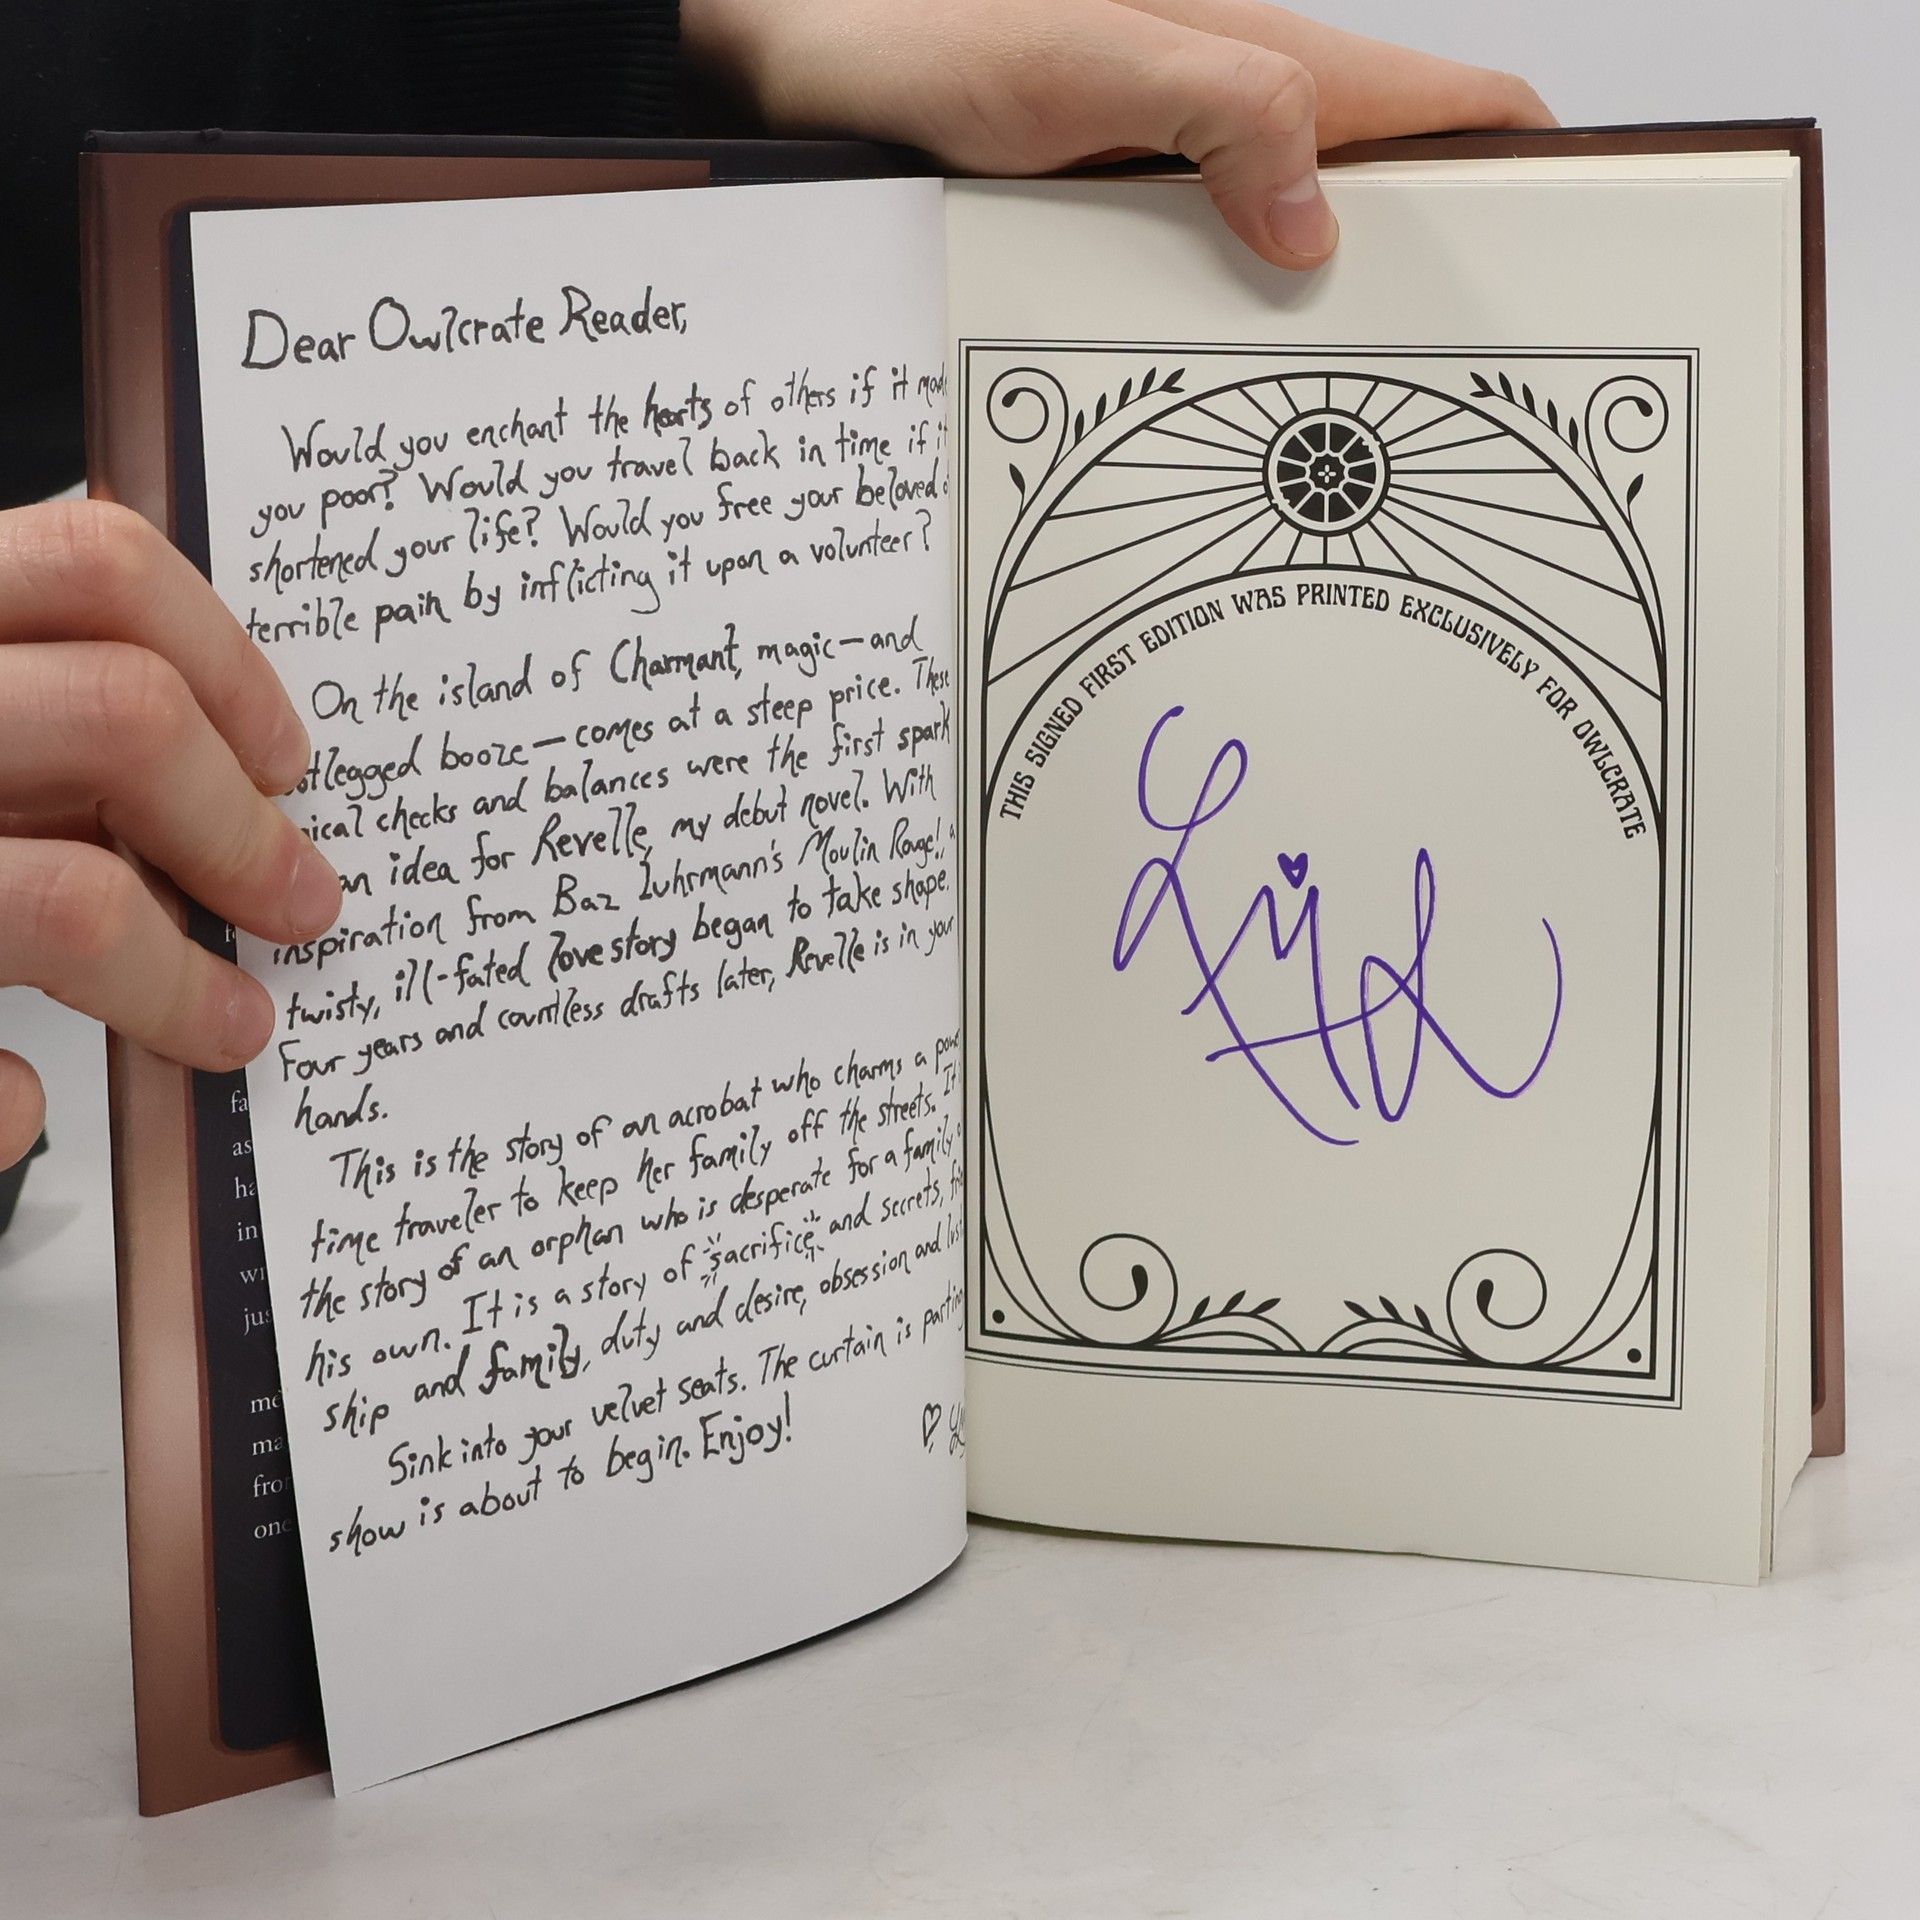 Dear Owlcrate Reader,
Would you enchant the hearts of others if it made
you poor? Would you travel back in time if it
shortened your life? Would you free your beloved
terrible pain by inflicting it upon a volunteer?
On the island of Charmant, magic—and
otlegged booze—comes at a steep price. These
ical checks and balances were the first spark
an idea for Revelle, my debut novel. With
inspiration from Baz Luhrmann's Moulin Rouge!, a
twisty, ill-fated love story began to take shape.
Four years and countless drafts later, Revelle is in your
hands.
This is the story of an acrobat who charms a
time traveler to keep her family off the streets. It
the story of an orphan who is desperate for a family
his own. It is a story of sacrifice and secrets,
ship and family, duty and desire, obsession and
Sink into your velvet seats. The curtain is parting
show is about to begin. Enjoy!
fa
as
ha
in
wi
jus
me
ma
fro
one
THIS SIGNED FIRST EDITION WAS PRINTED EXCLUSIVELY FOR OWLCRATE